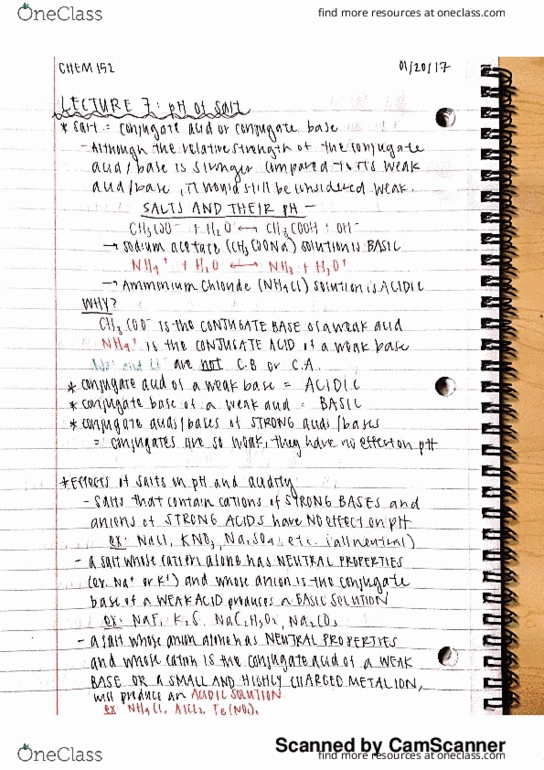 OneClass
find more resources at oneclass.com
CHEM 152
01/20/17
LECTURE 7: pH of Salt
* salt = conjugate acid or conjugate base
- Although the relative strength of the conjugate
acid/base is stronger compared to its weak
acid/base, it would still be considered weak.
SALTS AND THEIR pH -
CH3COO- + H2O ↔ CH3COOH + OH-
→ sodium acetate (CH3COONa) solution is BASIC
NH4+ + H2O ↔ NH3 + H3O+
→ Ammonium Chloride (NH4Cl) solution is ACIDIC
WHY?
CH3COO- is the CONJUGATE BASE of a weak acid
NH4+ is the CONJUGATE ACID of a weak base
Na+ and Cl- are not C.B or C.A.
* conjugate acid of a weak base = ACIDIC
* conjugate base of a weak acid = BASIC
* conjugate acids/bases of STRONG acids/bases
= conjugates are so weak, they have no effect on pH
* Effects of salts on pH and acidity
- Salts that contain cations of STRONG BASES and
anions of STRONG ACIDS have NO EFFECT on pH
ex: NaCl, KNO3, Na2SO4 etc. (all neutral)
- a salt whose cation alone has NEUTRAL PROPERTIES
(ex. Na+ or K+) and whose anion is the conjugate
base of a WEAK ACID produces a BASIC SOLUTION
ex: NaF, K2S, NaC2H3O2, Na2CO3
- a salt whose anion alone has NEUTRAL PROPERTIES
and whose cation is the conjugate acid of a WEAK
BASE OR A SMALL AND HIGHLY CHARGED METAL ION,
will produce an ACIDIC SOLUTION
ex: NH4Cl, AlCl3, Fe(NO3)3
Scanned by CamScanner
OneClass
find more resources at oneclass.com